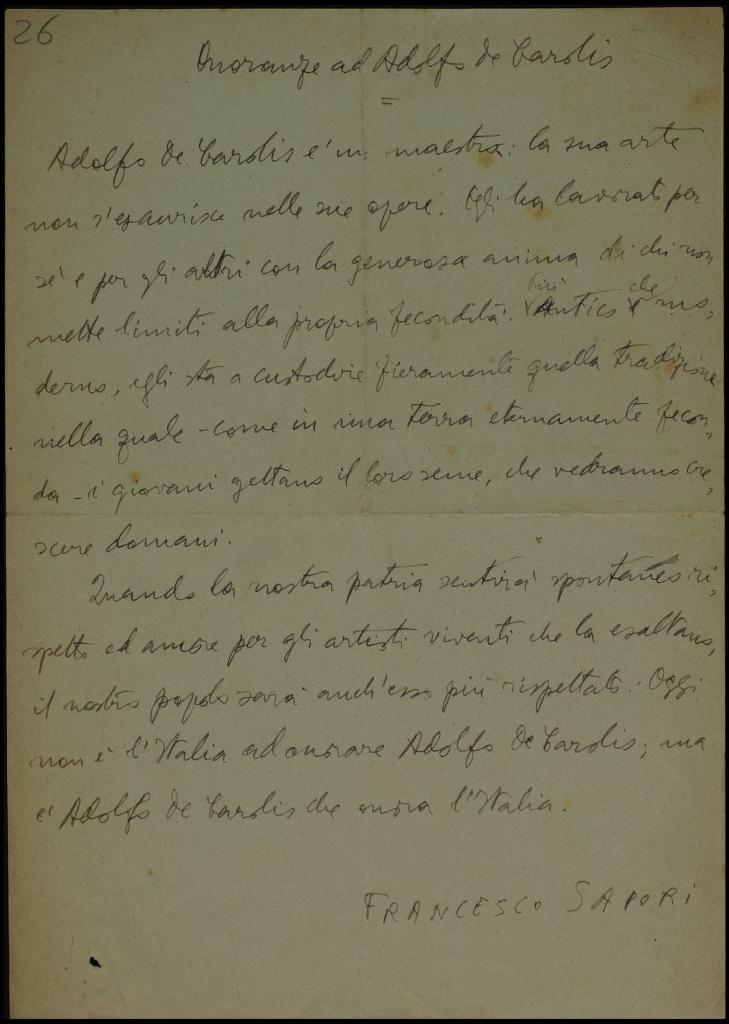 26
Onoranze ad Adolfo de Carolis
=
Adolfo De Carolis e' un maestro: la sua arte
non s'esaurisce nelle sue opere. Egli ha lavorato per
sé e per gli altri con la generosa anima di chi non
mette limiti alla propria fecondità. Più antico che mo,
derno, egli sta a custodire fieramente quella tradizione
nella quale - come in una terra eternamente fecon,
da - i giovani gettano il loro seme, che vedranno cre,
scere domani.
Quando la nostra patria sentirà spontaneo ri,
spetto ed amore per gli artisti viventi che la esaltano,
il nostro popolo sarà anch'esso più rispettato. Oggi
non è l'Italia ad onorare Adolfo De Carolis; ma
e' Adolfo De Carolis che onora l'Italia.
FRANCESCO SAPORI